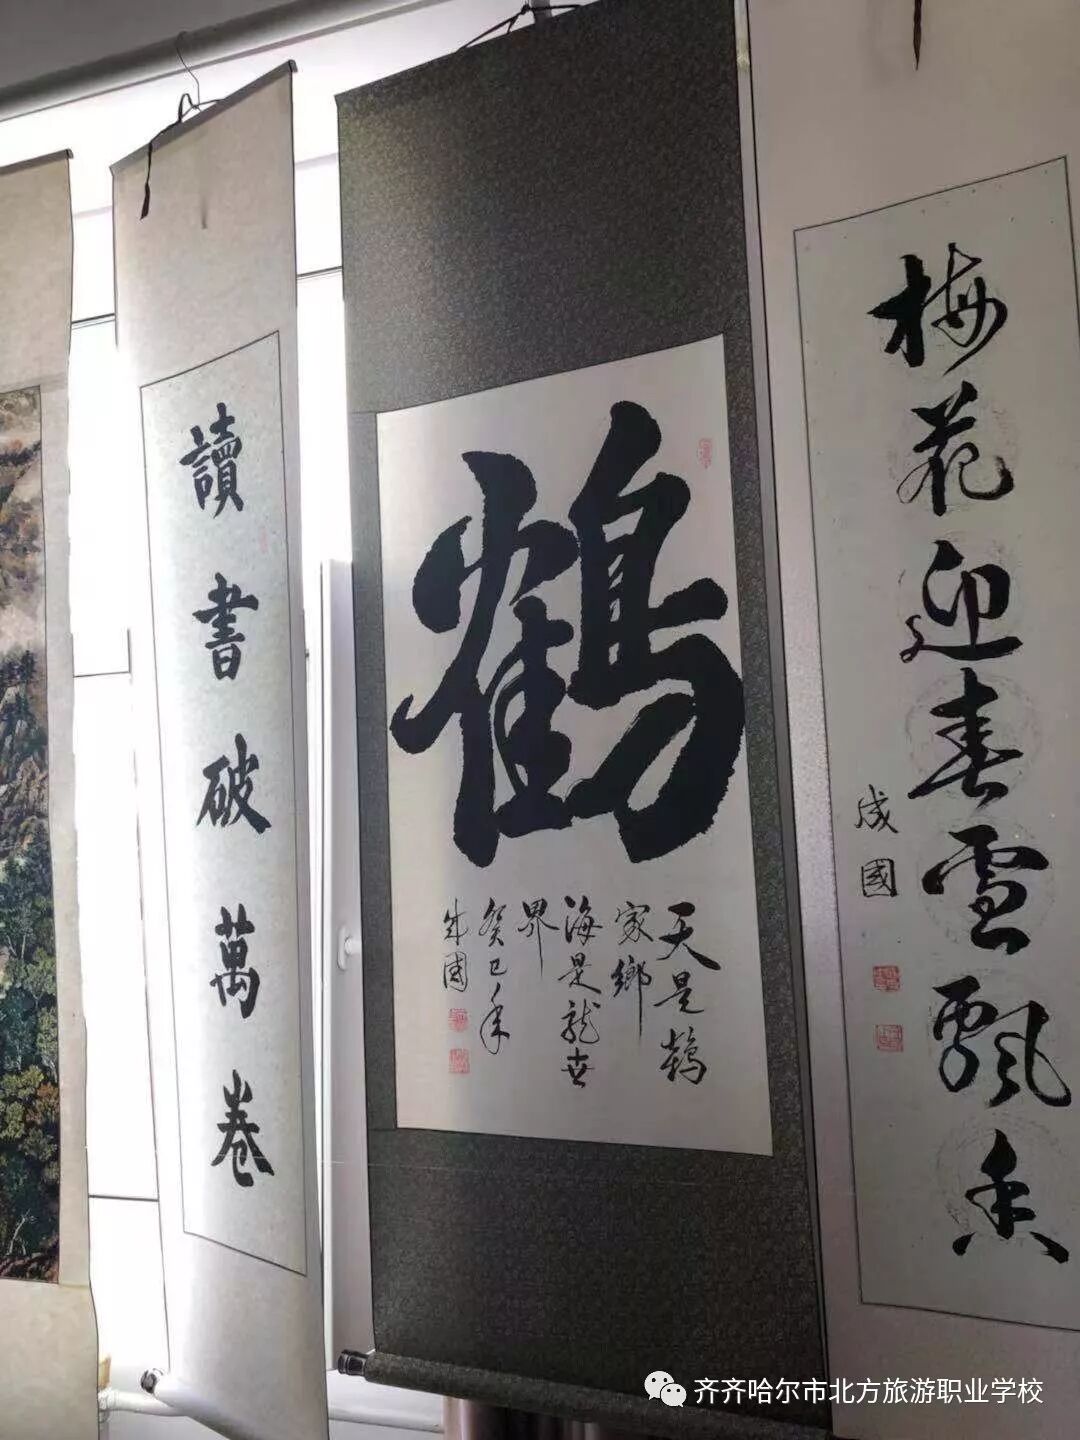 梅花迎春雪飄香
成國
鶴
天是鶴
家鄉
海是龍世
界
癸巳年
成國
讀書破萬卷
齐齐哈尔市北方旅游职业学校